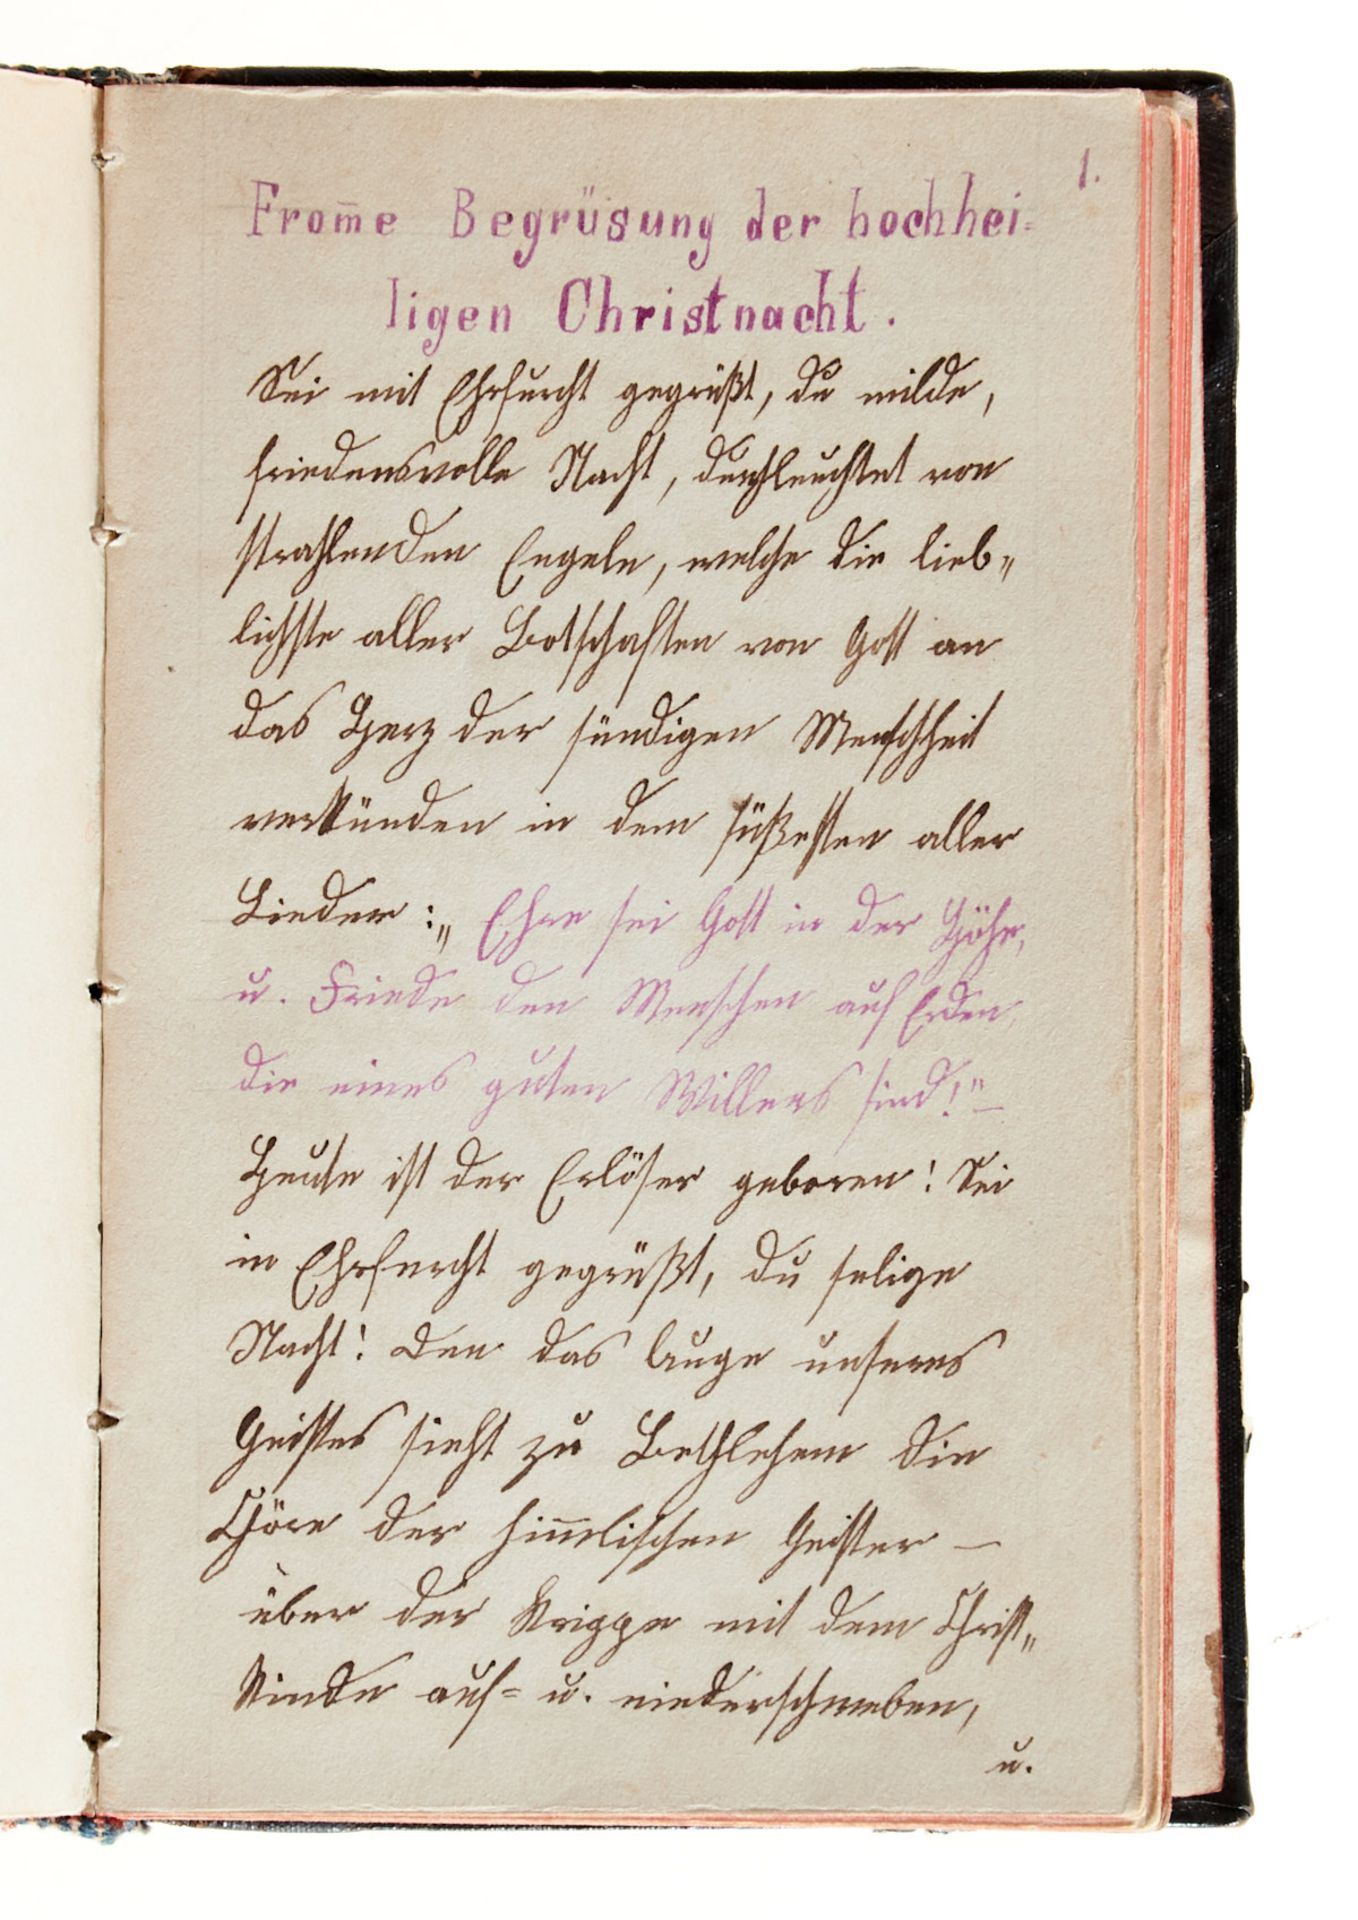 1.
From̅e Begrüsung der hochhei-
ligen Christnacht.
Sei mit Ehrfurcht gegrüßt, du milde,
friedensvolle Nacht, durchleuchtet von
strahlenden Engeln, welche die lieb„
lichste aller Botschaften von Gott an
das Herz der sündigen Menschheit
verkünden in dem süßesten aller
Lieder: „Ehre sei Gott in der Höhe,
u. Friede den Menschen auf Erden,
die eines guten Willens sind!" —
Heute ist der Erlöser geboren! Sei
in Ehrfurcht gegrüßt, du selige
Nacht! Den das Auge unseres
Geistes sieht zu Bethlehem die
Chöre der him̅lischen Geister —
über der Krippe mit dem Christ„
kinde auf- u. niederschweben,
u.